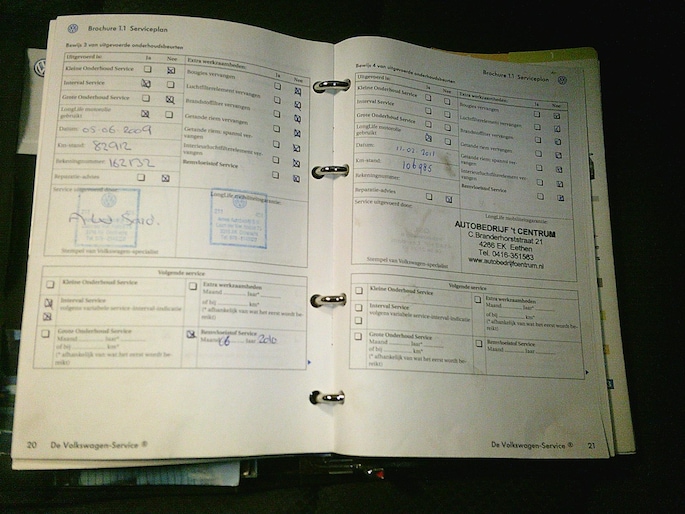 Brochure 1.1 Serviceplan
Bewijs 3 van uitgevoerde onderhoudsbeurten
Uitgevoerd is: Ja Nee
Kleine Onderhoud Service
Interval Service
Grote Onderhoud Service
LongLife motorolie
gebruikt
Datum: 05-06-2009
Km-stand: 82912
Rekeningnummer: 162132
Reparatie-advies
Extra werkzaamheden: Ja Nee
Bougies vervangen
Luchtfilterelement vervangen
Brandstoffilter vervangen
Getande riem vervangen
Getande riem: spanrol ver-
vangen
Interieurluchtfilterelement ver-
vangen
Remvloeistof Service
Service uitgevoerd door:
LongLife mobiliteitsgarantie:
Stempel van Volkswagen-specialist
Volgende service
Kleine Onderhoud Service
Interval Service
volgens variabele service-interval-indicatie
Grote Onderhoud Service
Maand jaar*
of bij km*
(* afhankelijk van wat het eerst wordt be-
reikt)
Extra werkzaamheden:
Maand jaar*
of bij km*
(* afhankelijk van wat het eerst wordt be-
reikt)
Remvloeistof Service
Maand 06 jaar 2010
20 De Volkswagen-Service ®
Brochure 1.1 Serviceplan
Bewijs 4 van uitgevoerde onderhoudsbeurten
Uitgevoerd is: Ja Nee
Kleine Onderhoud Service
Interval Service
Grote Onderhoud Service
LongLife motorolie
gebruikt
Datum: 11-02-2011
Km-stand: 106985
Rekeningnummer:
Reparatie-advies
Extra werkzaamheden: Ja Nee
Bougies vervangen
Luchtfilterelement vervangen
Brandstoffilter vervangen
Getande riem vervangen
Getande riem: spanrol ver-
vangen
Interieurluchtfilterelement ver-
vangen
Remvloeistof Service
Service uitgevoerd door:
LongLife mobiliteitsgarantie:
AUTOBEDRIJF 't CENTRUM
C.Branderhorststraat 21
4266 EK Eethen
Tel. 0416-351583
www.autobedrijfcentrum.nl
Stempel van Volkswagen-specialist
Volgende service
Kleine Onderhoud Service
Interval Service
volgens variabele service-interval-indicatie
Grote Onderhoud Service
Maand jaar*
of bij km*
(* afhankelijk van wat het eerst wordt be-
reikt)
Extra werkzaamheden:
Maand jaar*
of bij km*
(* afhankelijk van wat het eerst wordt be-
reikt)
Remvloeistof Service
Maand jaar
De Volkswagen-Service ® 21